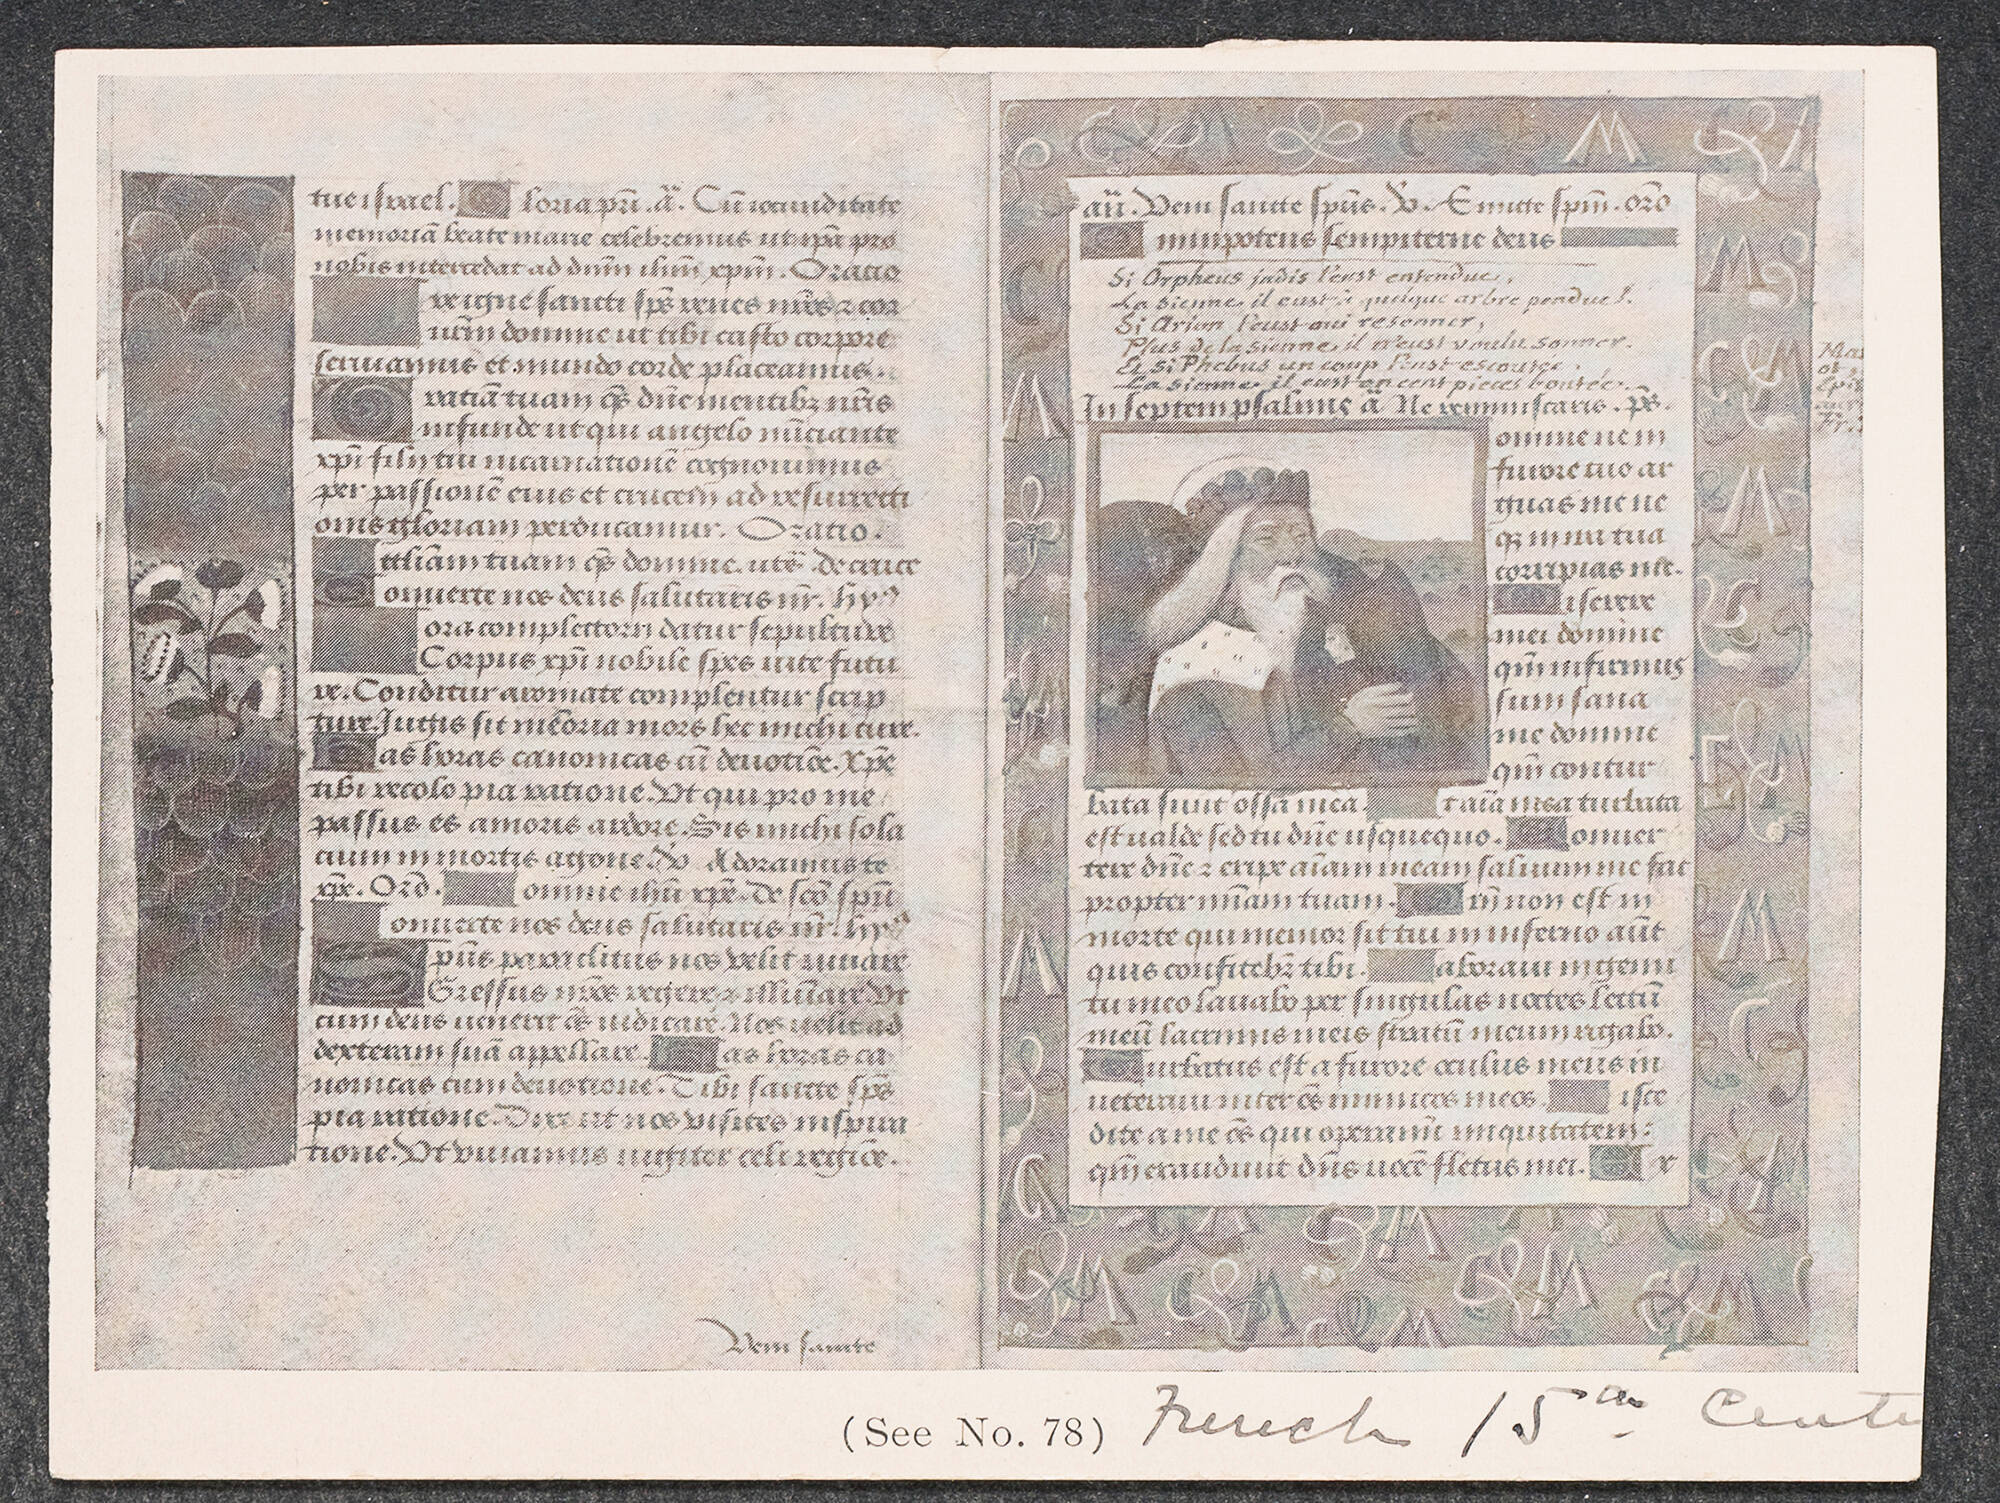 tue israel. loria pri. ā. Cū iocunditate
memoriā beate marie celebremus ut ipa pro
nobis intercedat ad dnm ihm xpm. Oratio
re igne sancti sps renes nros ⁊ cor
domine ut tibi casto corpore
seruiamus et mundo corde placeamus.
ratiā tuam qs dne mentibz nris
infunde ut qui angelo nūciante
xpi filij tui incarnationē cognouimus
per passionē eius et crucem ad resurrecti
onis gloriam perducamur. Oratio.
domine. De cruce
onuerte nos deus salutaris nr. hyᵍ
ora completorij datur sepulture
Corpus xpi nobile spes uite futu
re. Conditur aromate complentur scrip
ture. Jugis sit memoria mors hec michi cure.
as horas canonicas cū deuotiōe. Xpe
tibi recolo pia ratione. Vt qui pro me
passus es amoris ardore. Sis michi sola
cium in mortis agone. V̄. Adoramus te
xpe. Orō. omine ihū xpe. De scō spū
onuerte nos deus salutaris nr. hyᵍ
pūs paraclitus nos velit iuuare
Gressus nros regere ⁊ illuīare. Vt
cum deus uenerit ōs iudicare. Nos uelit ad
dexteram suā appellare. as horas ca
nonicas cum deuotione. Tibi sancte sps
pia ratione. Dixi ut nos visites inspira
tione. Vt viuamus iugiter celi regiōe.
Veni sancte
añ. Veni sancte spūs. V̄. Emitte spm. orō
mnipotens sempiterne deus
Si Orpheus jadis l'eust entendue,
La sienne il eust à quelque arbre pendue.
Si Arion l'eust oui resonner,
Plus de la sienne il n'eust voulu sonner.
Et si Phebus un coup l'eust escoutée,
La sienne il eust en cent pieces boutée.
In septem psalmis ā Ne reminiscaris. ps.
omine ne in
furore tuo ar
guas me ne
qz in ira tua
corripias me.
iserere
mei domine
qm̄ infirmus
sum sana
me domine
qm̄ contur
bata sunt ossa mea. t aīa mea turbata
est ualde sed tu dne usquequo. onuer
tere dne ⁊ eripe aīam meam saluum me fac
propter mīam tuam. m̄ non est in
morte qui memor sit tui in inferno aūt
quis confitebr tibi. aboraui in gemi
tu meo lauabo per singulas noctes lectū
meū lacrimis meis stratū meum rigabo.
urbatus est a furore oculus meus in
ueteraui inter ōs inimicos meos. isce
dite a me ōs qui operamī iniquitatem:
qm̄ exaudiuit dns uocē fletus mei. x
(See No. 78) French 15th